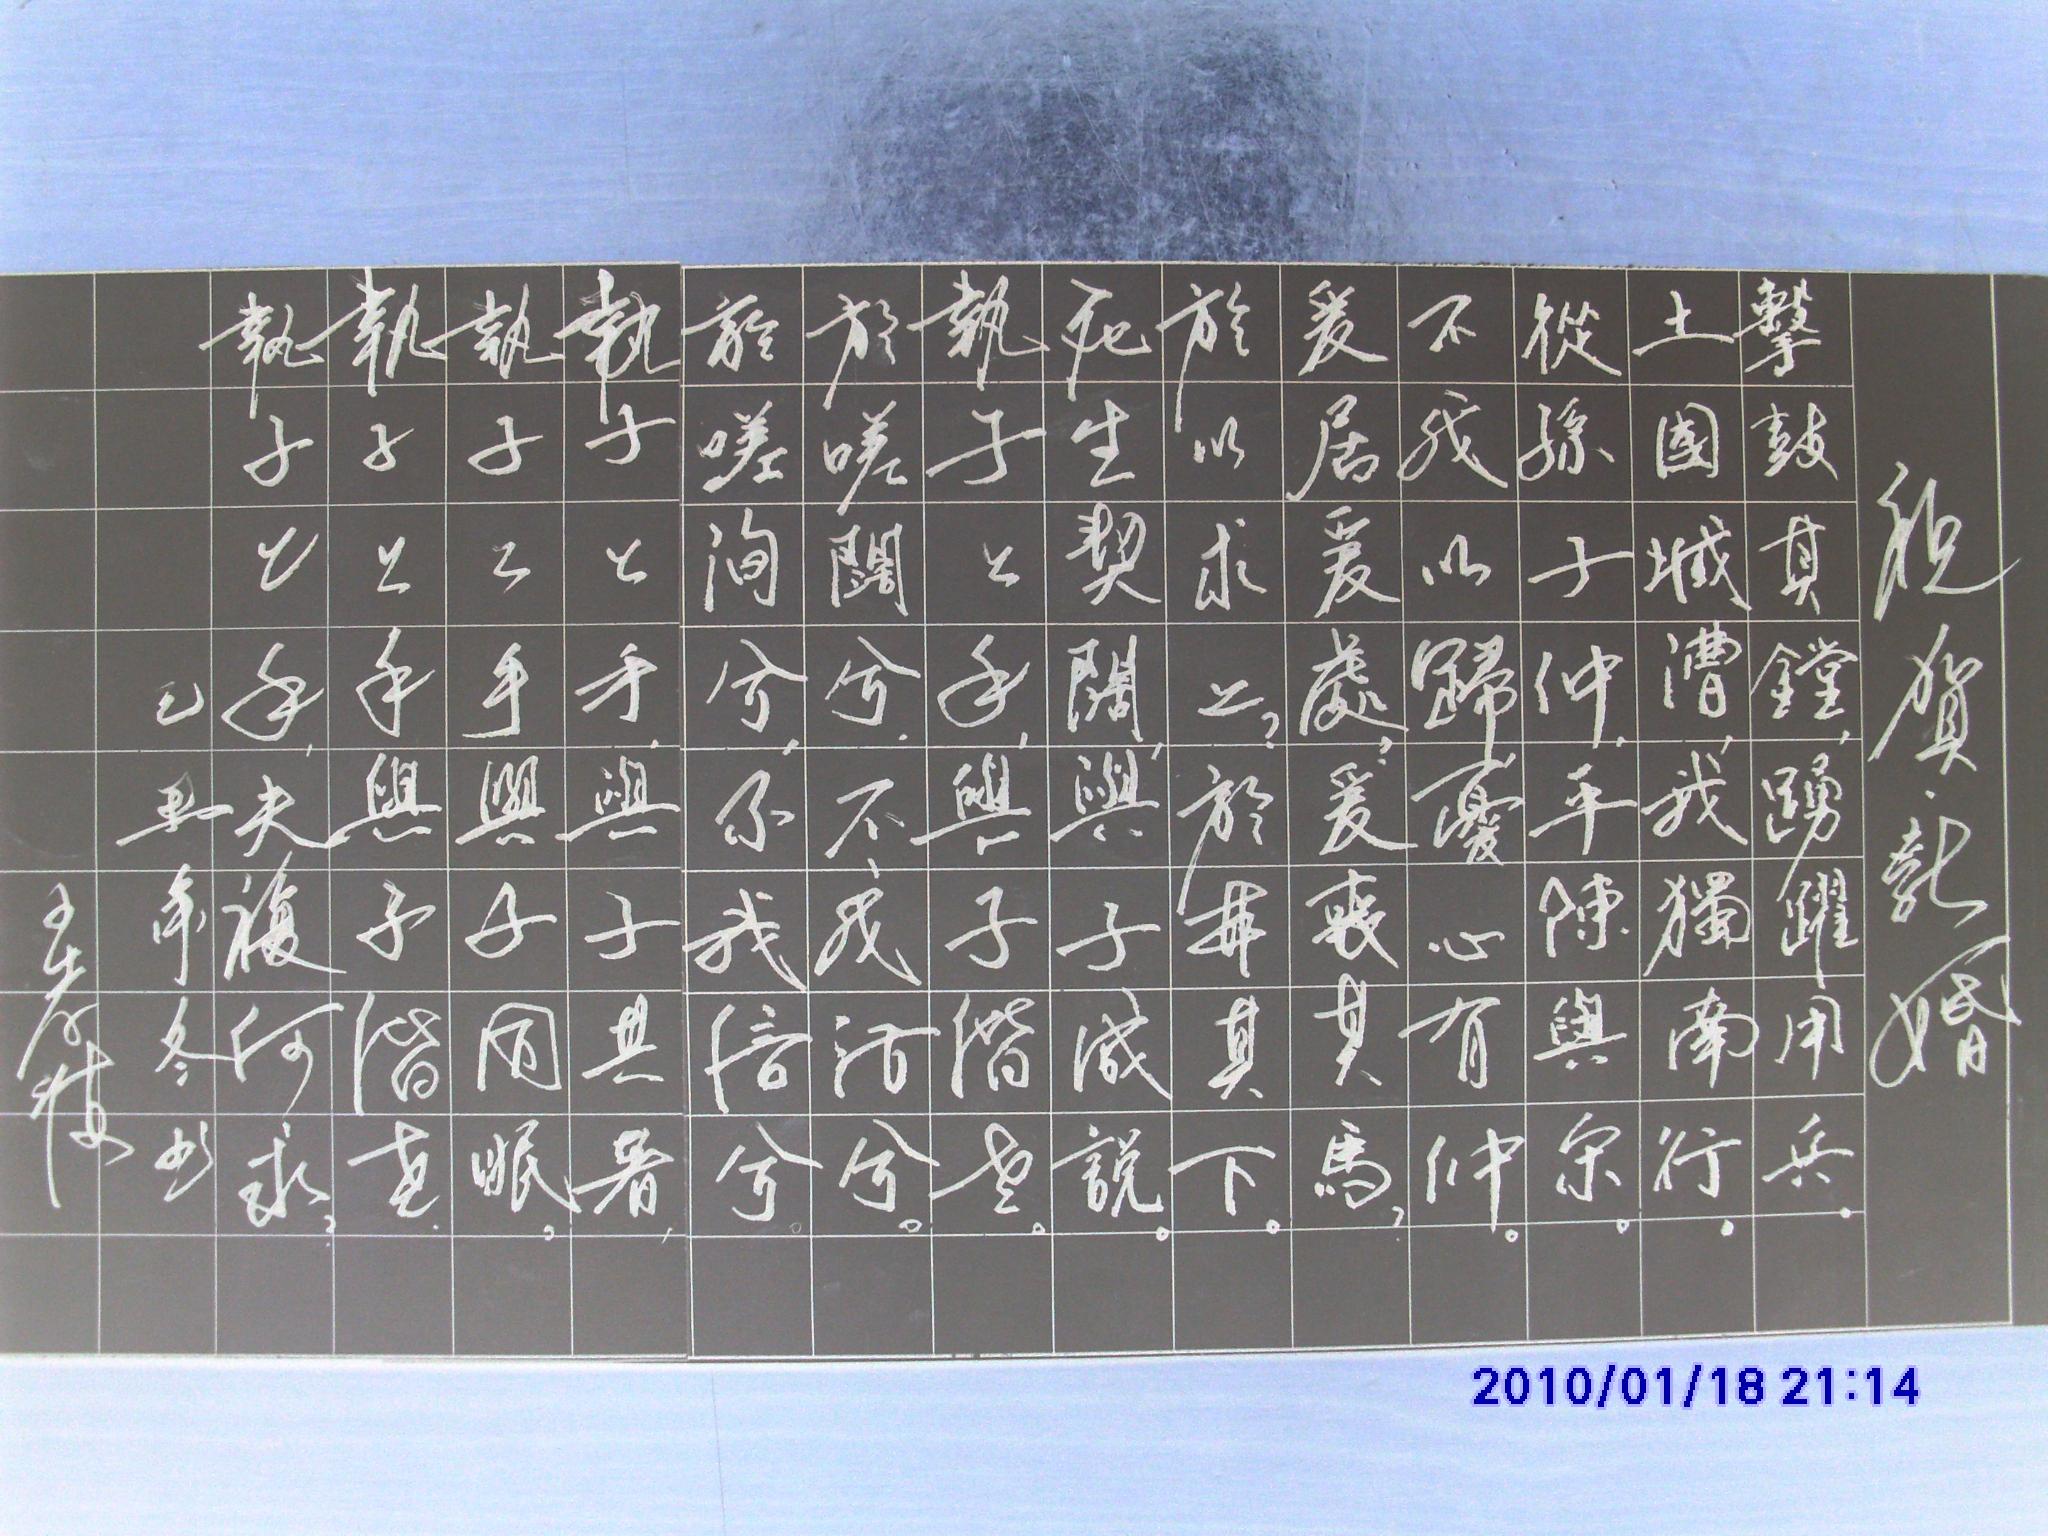 祝賀新婚
擊鼓其鏜，踴躍用兵。
土國城漕，我獨南行。
從孫子仲，平陳與宋。
不我以歸，憂心有仲。
爰居爰處？爰喪其馬？
於以求之？於林其下。
死生契闊，與子成說。
執子之手，與子偕老。
於嗟闊兮，不我活兮。
於嗟洵兮，不我信兮。
執子之手，與子共著，
執子之手，與子同眠。
執子之手，與子偕老.
執子之手，夫複何求？
己丑年冬書
2010/01/18 21:14